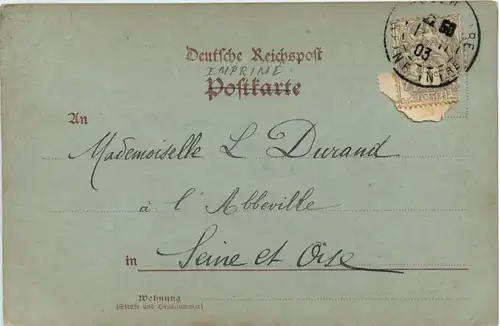 Deutsche Reichspost
IMPRIMÉ
Postkarte
An
Mademoiselle L Durand
à l'Abbeville
in Seine et Oise
Wohnung
(Straße und Hausnummer)
03